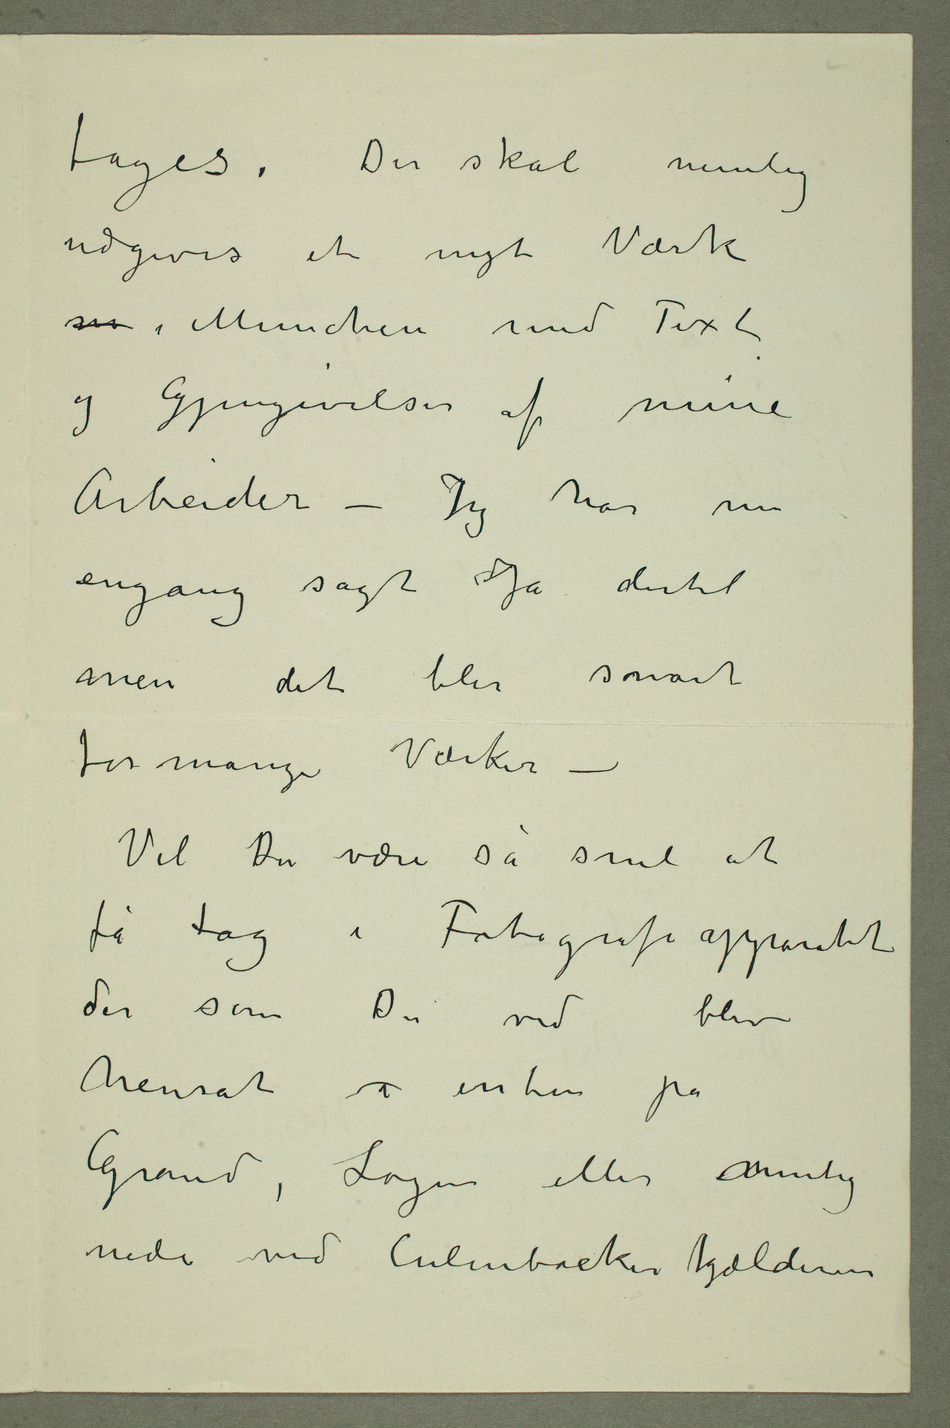 tages. Der skal nemlig
udgives et nyt Værk
m i München med Text
og Gjengivelser af mine
Arbeider – Jeg har nu
engang sagt Ja dertil
men det blir snart
for mange Værker –
Vil Du være så snil at
få tag i Fotografiapparatet
der som Du ved blev
hensat i enten på
Grand, Logen eller mulig
nede ved Culmbackerkjælderen